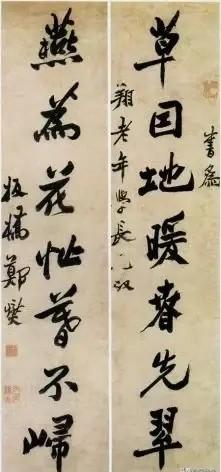 書為
草因地暖春先翠
翔老年學長兄
燕為花忙暮不歸
板橋鄭燮